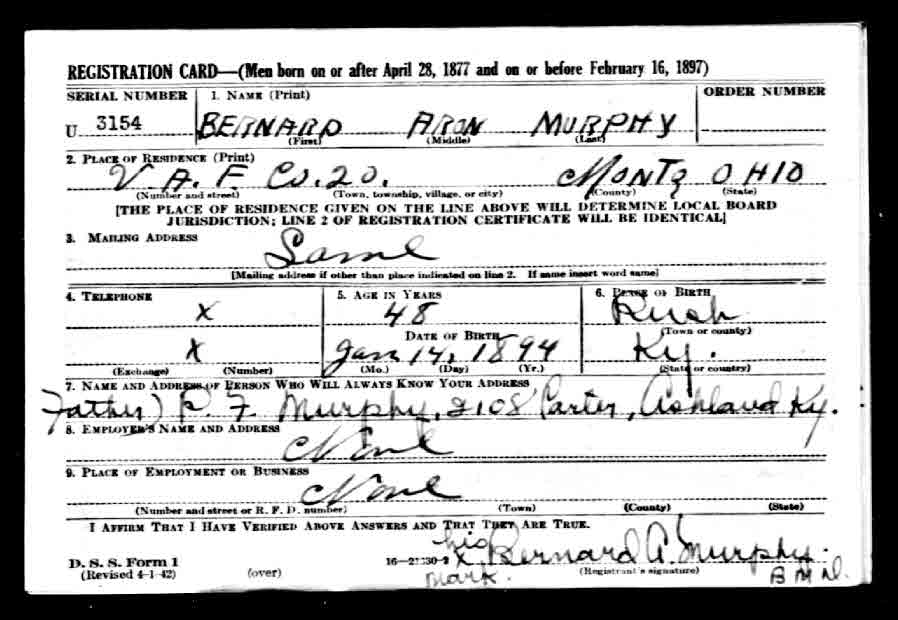 REGISTRATION CARD—(Men born on or after April 28, 1877 and on or before February 16, 1897)
SERIAL NUMBER 1. NAME (Print) ORDER NUMBER
U 3154 BERNARD ARON MURPHY
(First) (Middle) (Last)
2. PLACE OF RESIDENCE (Print)
V.A.F. Co. 20. MONTG OHIO
(Number and street) (Town, township, village, or city) (County) (State)
[THE PLACE OF RESIDENCE GIVEN ON THE LINE ABOVE WILL DETERMINE LOCAL BOARD
JURISDICTION; LINE 2 OF REGISTRATION CERTIFICATE WILL BE IDENTICAL]
3. MAILING ADDRESS
Same
[Mailing address if other than place indicated on line 2. If same insert word same]
4. TELEPHONE 5. AGE IN YEARS 6. PLACE OF BIRTH
X 48 Rush
DATE OF BIRTH (Town or county)
X Jan 14, 1894 Ky.
(Exchange) (Number) (Mo.) (Day) (Yr.) (State or country)
7. NAME AND ADDRESS OF PERSON WHO WILL ALWAYS KNOW YOUR ADDRESS
Father) P. F. Murphy, 2108 Carter, Ashland Ky.
8. EMPLOYER'S NAME AND ADDRESS
None
9. PLACE OF EMPLOYMENT OR BUSINESS
None
(Number and street or R. F. D. number) (Town) (County) (State)
I AFFIRM THAT I HAVE VERIFIED ABOVE ANSWERS AND THAT THEY ARE TRUE.
his
D. S. S. Form 1 X Bernard A. Murphy.
(Revised 4-1-42) (over) mark. (Registrant's signature) B M D.